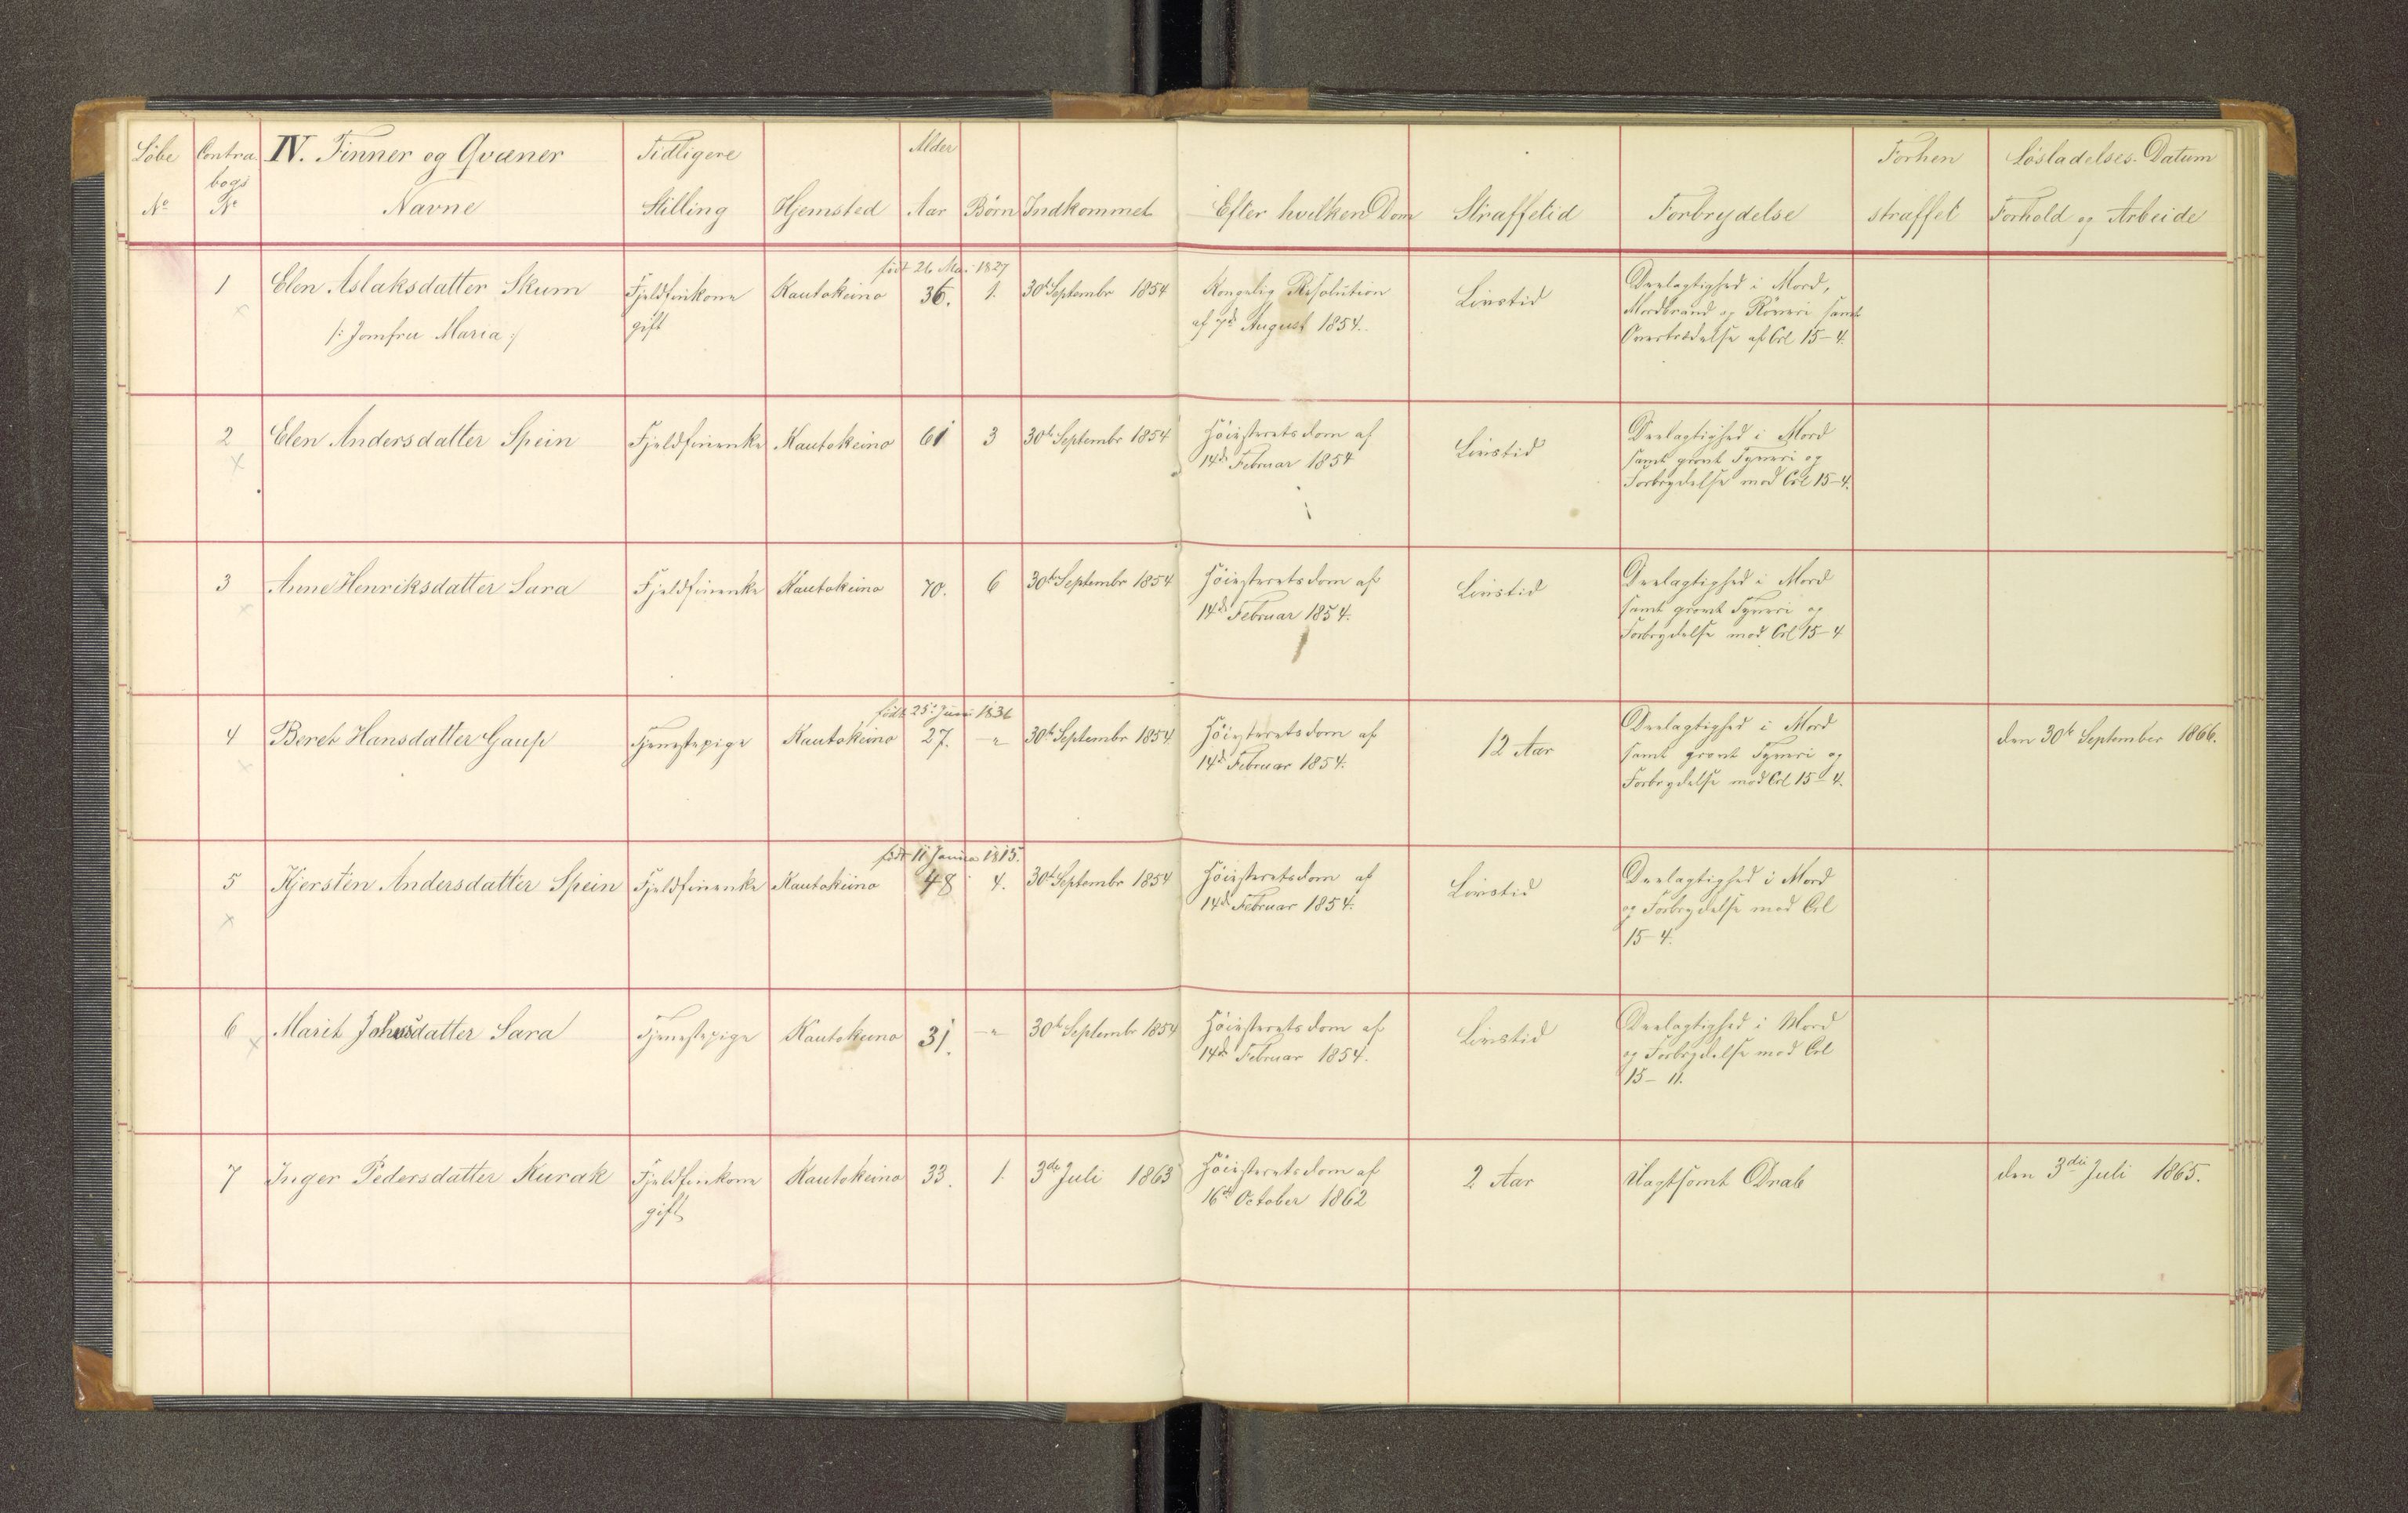 Løbe Contra IV. Finner og Qvæner Tidligere Alder Forhen Løsladelses-Datum
bogs
No No Navne Stilling Hjemsted Aar Børn Indkommet Efter hvilken Dom Straffetid Forbrydelse straffet Forhold og Arbeide
født 26 Mai 1827
1 Elen Aslaksdatter Skum Fjeldfinkone Kautokeino 36. 1. 30te Septembr 1854 Kongelig Resolution Livstid Deelagtighed i Mord,
/: Jomfru Maria :/ gift af 7de August 1854. Mordbrand og Röveri samt
Overtrædelse af Crl 15-4.
2 Elen Andersdatter Spein Fjeldfinenke Kautokeino 61 3 30te Septembr 1854 Høiesteretsdom af Livstid Deelagtighed i Mord
14de Februar 1854 samt grovt Tyveri og
Forbrydelse mod Crl 15-4.
3 Anne Henriksdatter Sara Fjeldfinenke Kautokeino 70. 6 30te Septembr 1854 Høiesteretsdom af Livstid Deelagtighed i Mord
14de Februar 1854. samt grovt Tyveri og
Forbrydelse mod Crl 15-4
født 25de Juni 1836
4 Beret Hansdatter Gaup Tjenestepige Kautokeino 27. -„ 30te Septembr 1854 Høiesteretsdom af 12 Aar Deelagtighed i Mord den 30te September 1866.
14de Februar 1854. samt grovt Tyveri og
Forbrydelse mod Crl 15-4.
født 11 Janua 1815.
5 Kjersten Andersdatter Spein Fjeldfinenke Kautokeino 48 4. 30te Septembr 1854 Høiesteretsdom af Livstid Deelagtighed i Mord
14de Februar 1854. og Forbrydelse mod Crl
15-4.
6 Marit Sara Tjenestepige Kautokeino 31. -„ 30te Septembr 1854 Høiesteretsdom af Livstid Deelagtighed i Mord
14de Februar 1854. og Forbrydelse mod Crl
15- 11.
7 Inger Pedersdatter Kurak Fjeldfinkone Kautokeino 33. 1. 3de Juli 1863 Høiesteretsdom af 2 Aar Uagtsomt Drab den 3die Juli 1865.
gift 16de October 1862